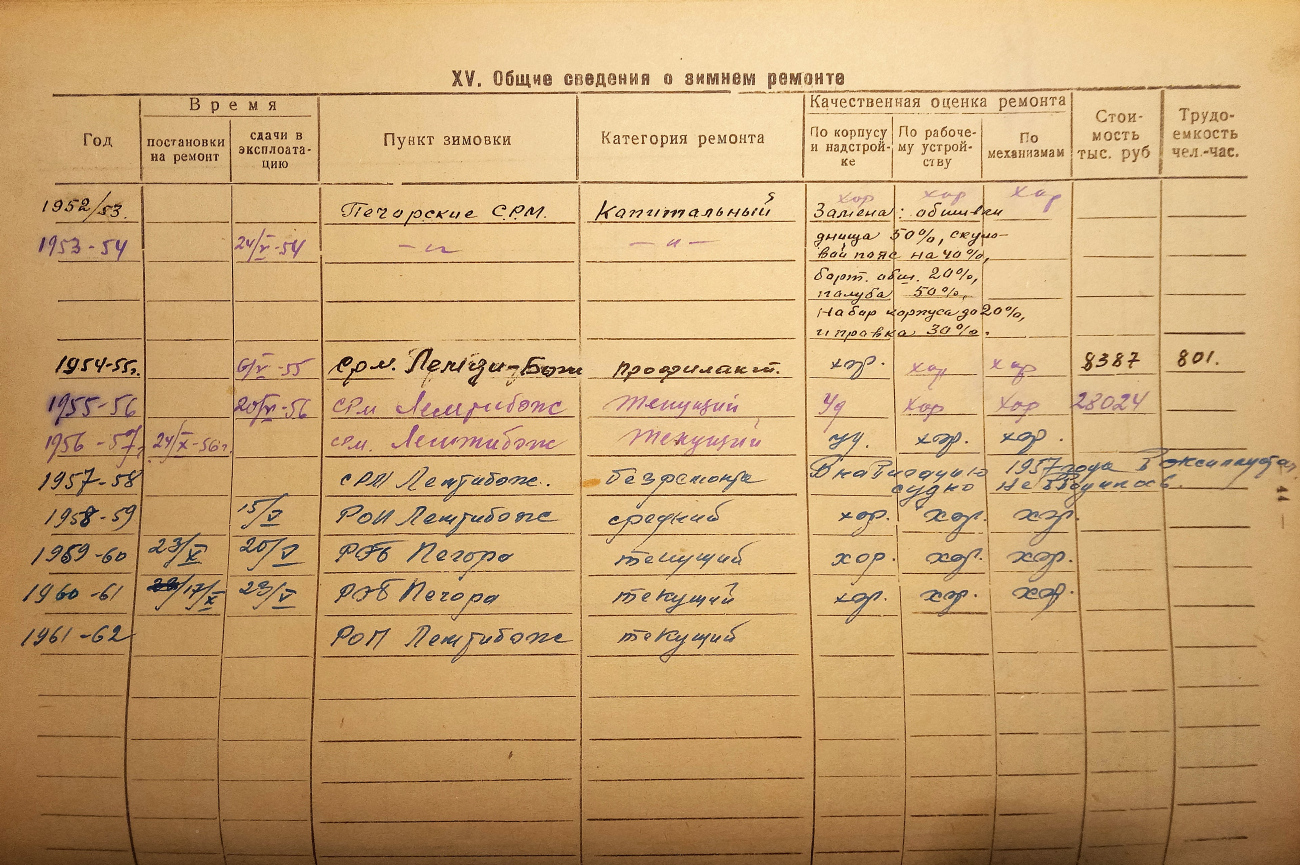 XV. Общие сведения о зимнем ремонте
Год
Время
постановки на ремонт
сдачи в эксплоата-
цию
Пункт зимовки
Категория ремонта
Качественная оценка ремонта
По корпусу и надстрой-
ке
По рабоче-
му устрой-
ству
По механизмам
Стои-
мость тыс. руб
Трудо-
емкость чел.-час.
1952/53. Печорские СРМ. Капитальный хор хор хор
Замена: обшивки
1953-54 24/V-54 -„- -„- днища 50%, скуло-
вой пояс на 40%,
борт. обш. 20%,
палуба 50%,
Набор корпуса до 20%,
и правка 30%.
1954-55г. 6/V-55 Срм. Лемтди-Бож профилакт. хор. хор хор 8387 801.
1955-56 20/V-56 СРМ Лемтибож Текущий Уд хор хор 28024
1956-57г. 24/X-56г. срм. Лемтибож Текущий уд. хор. хор.
1957-58 СРМ Лемтибож. без ремонта В навигацию 1957 года в эксплуатац.
судно не вводилось.
1958-59 15/V РОП Лемтибож средний хор. хор. хор.
1959-60 23/X 20/V РЭБ Печора текущий хор. хор. хор.
1960-61 17/X 23/V РЭБ Печора текущий хор. хор. хор.
1961-62 РОП Лемтибож текущий
44 —